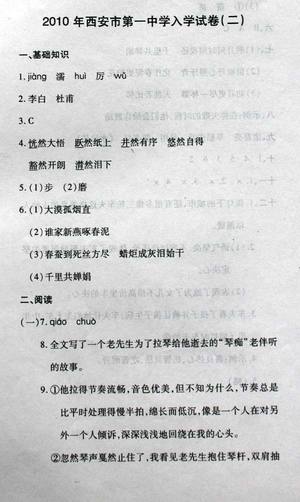 2010 年西安市第一中学入学试卷(二)
一、基础知识
1. jiàng 濡 huì 厉 wǔ
2. 李白 杜甫
3. C
4. 恍然大悟 跃然纸上 井然有序 悠然自得
豁然开朗 潸然泪下
5. (1)步 (2)磨
6. (1)大漠孤烟直
(2)谁家新燕啄春泥
(3)春蚕到死丝方尽 蜡炬成灰泪始干
(4)千里共婵娟
二、阅读
(一)7. qiáo chuò
8. 全文写了一个老先生为了拉琴给他逝去的“琴痴”老伴听
的故事。
9. ①他拉得节奏流畅,音色优美,但不知为什么,节奏总是
比平时处理得慢半拍,绵长而低沉,像是一个人在对另
外一个人倾诉,深深浅浅地回绕在我的心头。
②忽然琴声戛然止住了,我看见老先生抱住琴杆,双肩抽